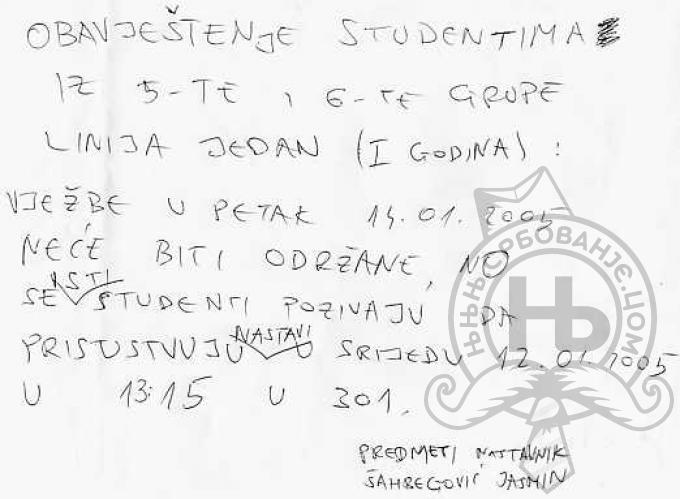 OBAVJEŠTENJE STUDENTIMA
IZ 5-TE I 6-TE GRUPE
LINIJA JEDAN (I GODINA) :
VJEŽBE U PETAK 14.01.2005
NEĆE BITI ODRŽANE, NO
SE ISTI STUDENTI POZIVAJU DA
PRISUSTVUJU NASTAVI U SRIJEDU 12.01.2005
U 13:15 U 301.
PREDMETI NASTAVNIK
ŠAHBEGOVIĆ JASMIN
ЊЊЊ.СРБОВАЊЕ.ЦОМ
Њ